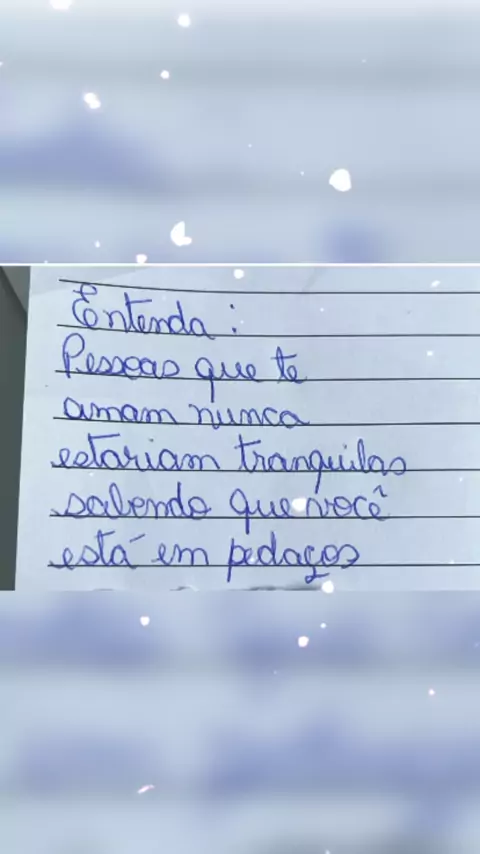 Entenda:
Pessoas que te
amam nunca
estariam tranquilas
sabendo que você
está em pedaços